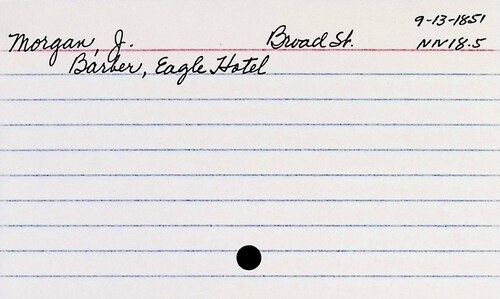 9-13-1851
Morgan, J. Broad St. NN18.5
Barber, Eagle Hotel